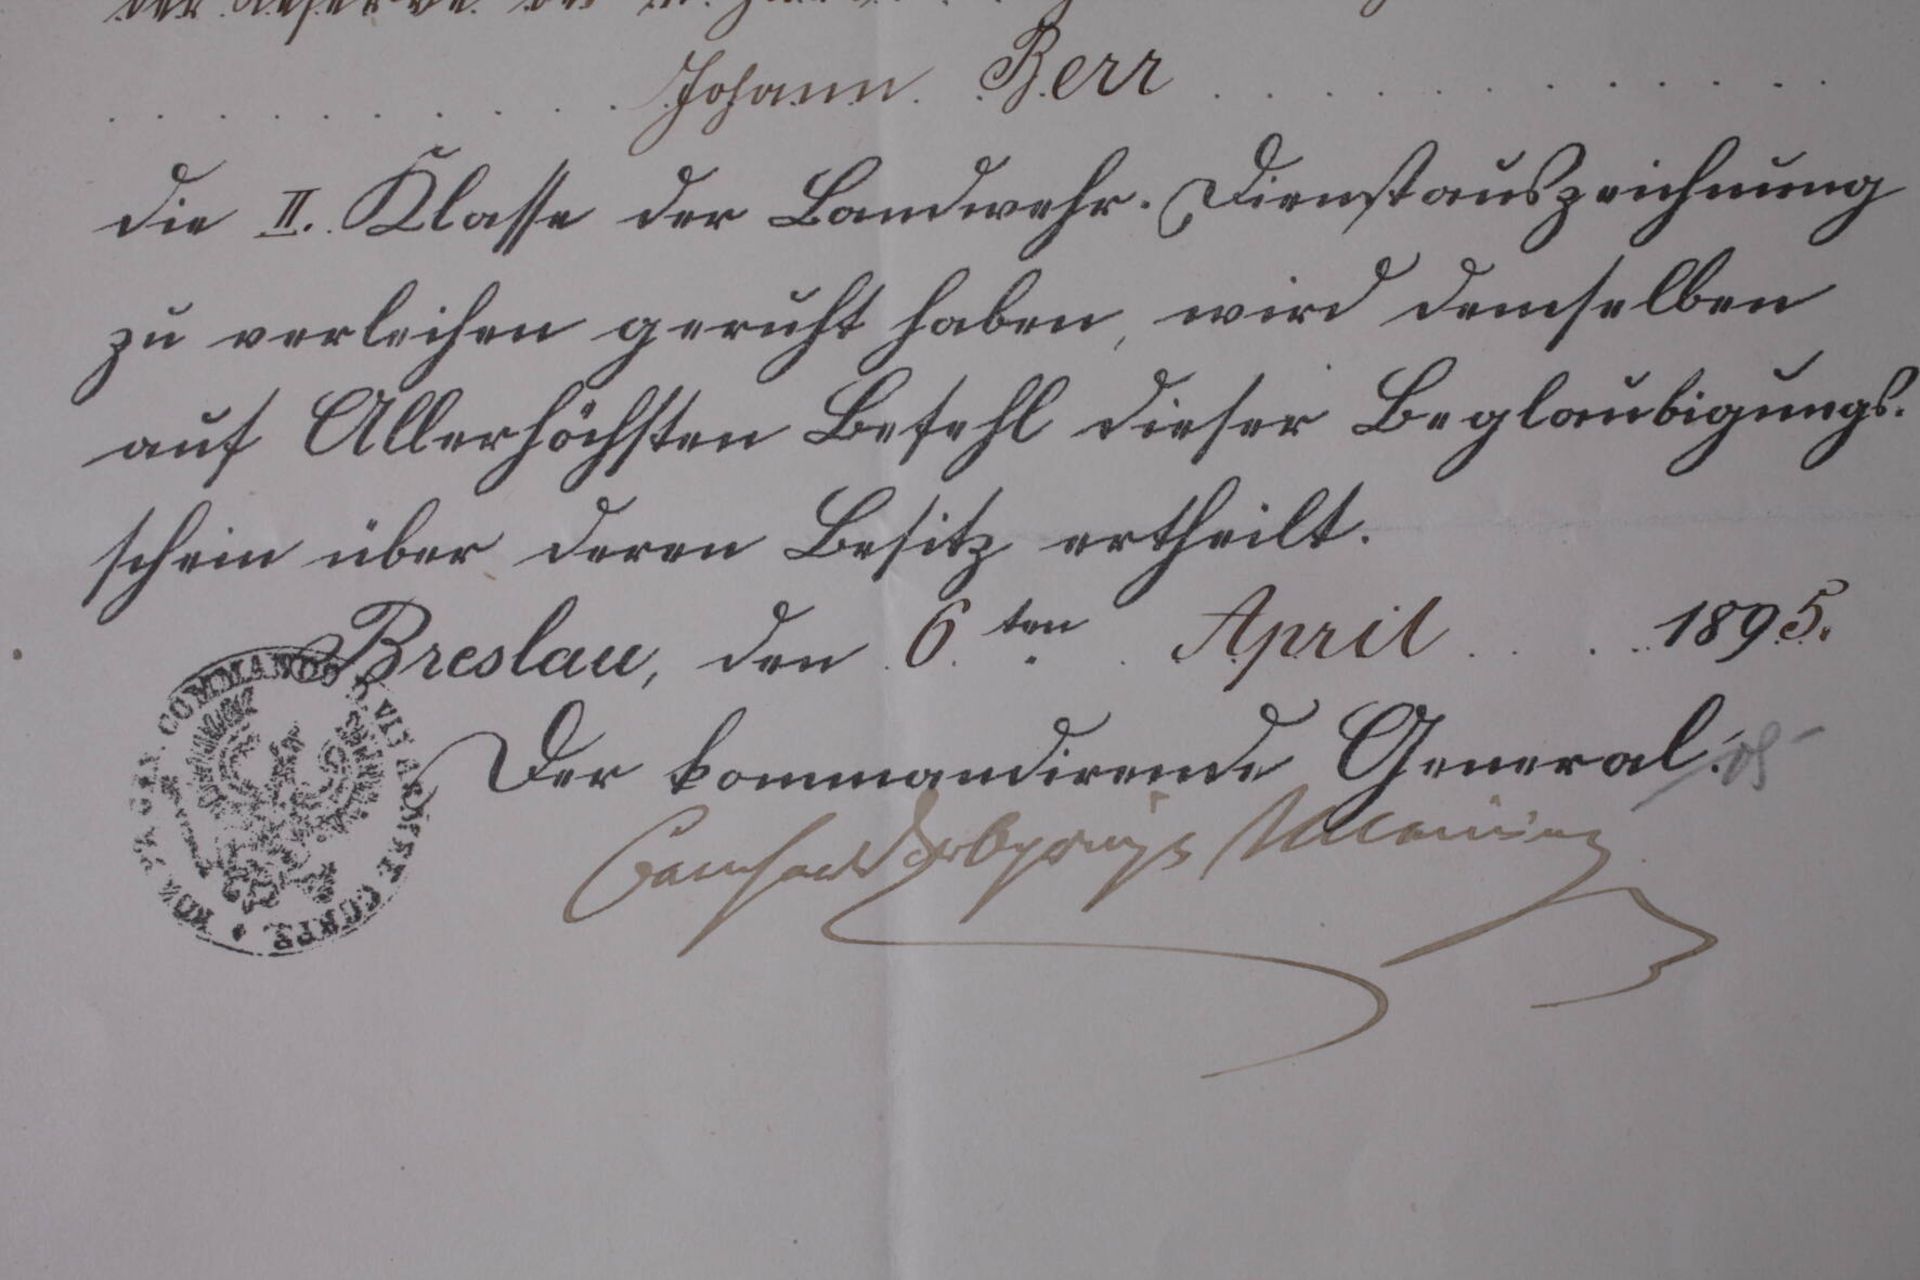 der Reserve der
Johann Berr
die II. Klasse der Landwehr-Dienstauszeichnung
zu verleihen geruht haben, wird demselben
auf Allerhöchsten Befehl dieser Beglaubigungs-
schein über deren Besitz ertheilt.
Breslau, den 6ten April 1895.
Der kommandirende General:
Erbprinz Meiningen
KÖN. PR. GEN. COMMANDO D. VI. ARMEE CORPS